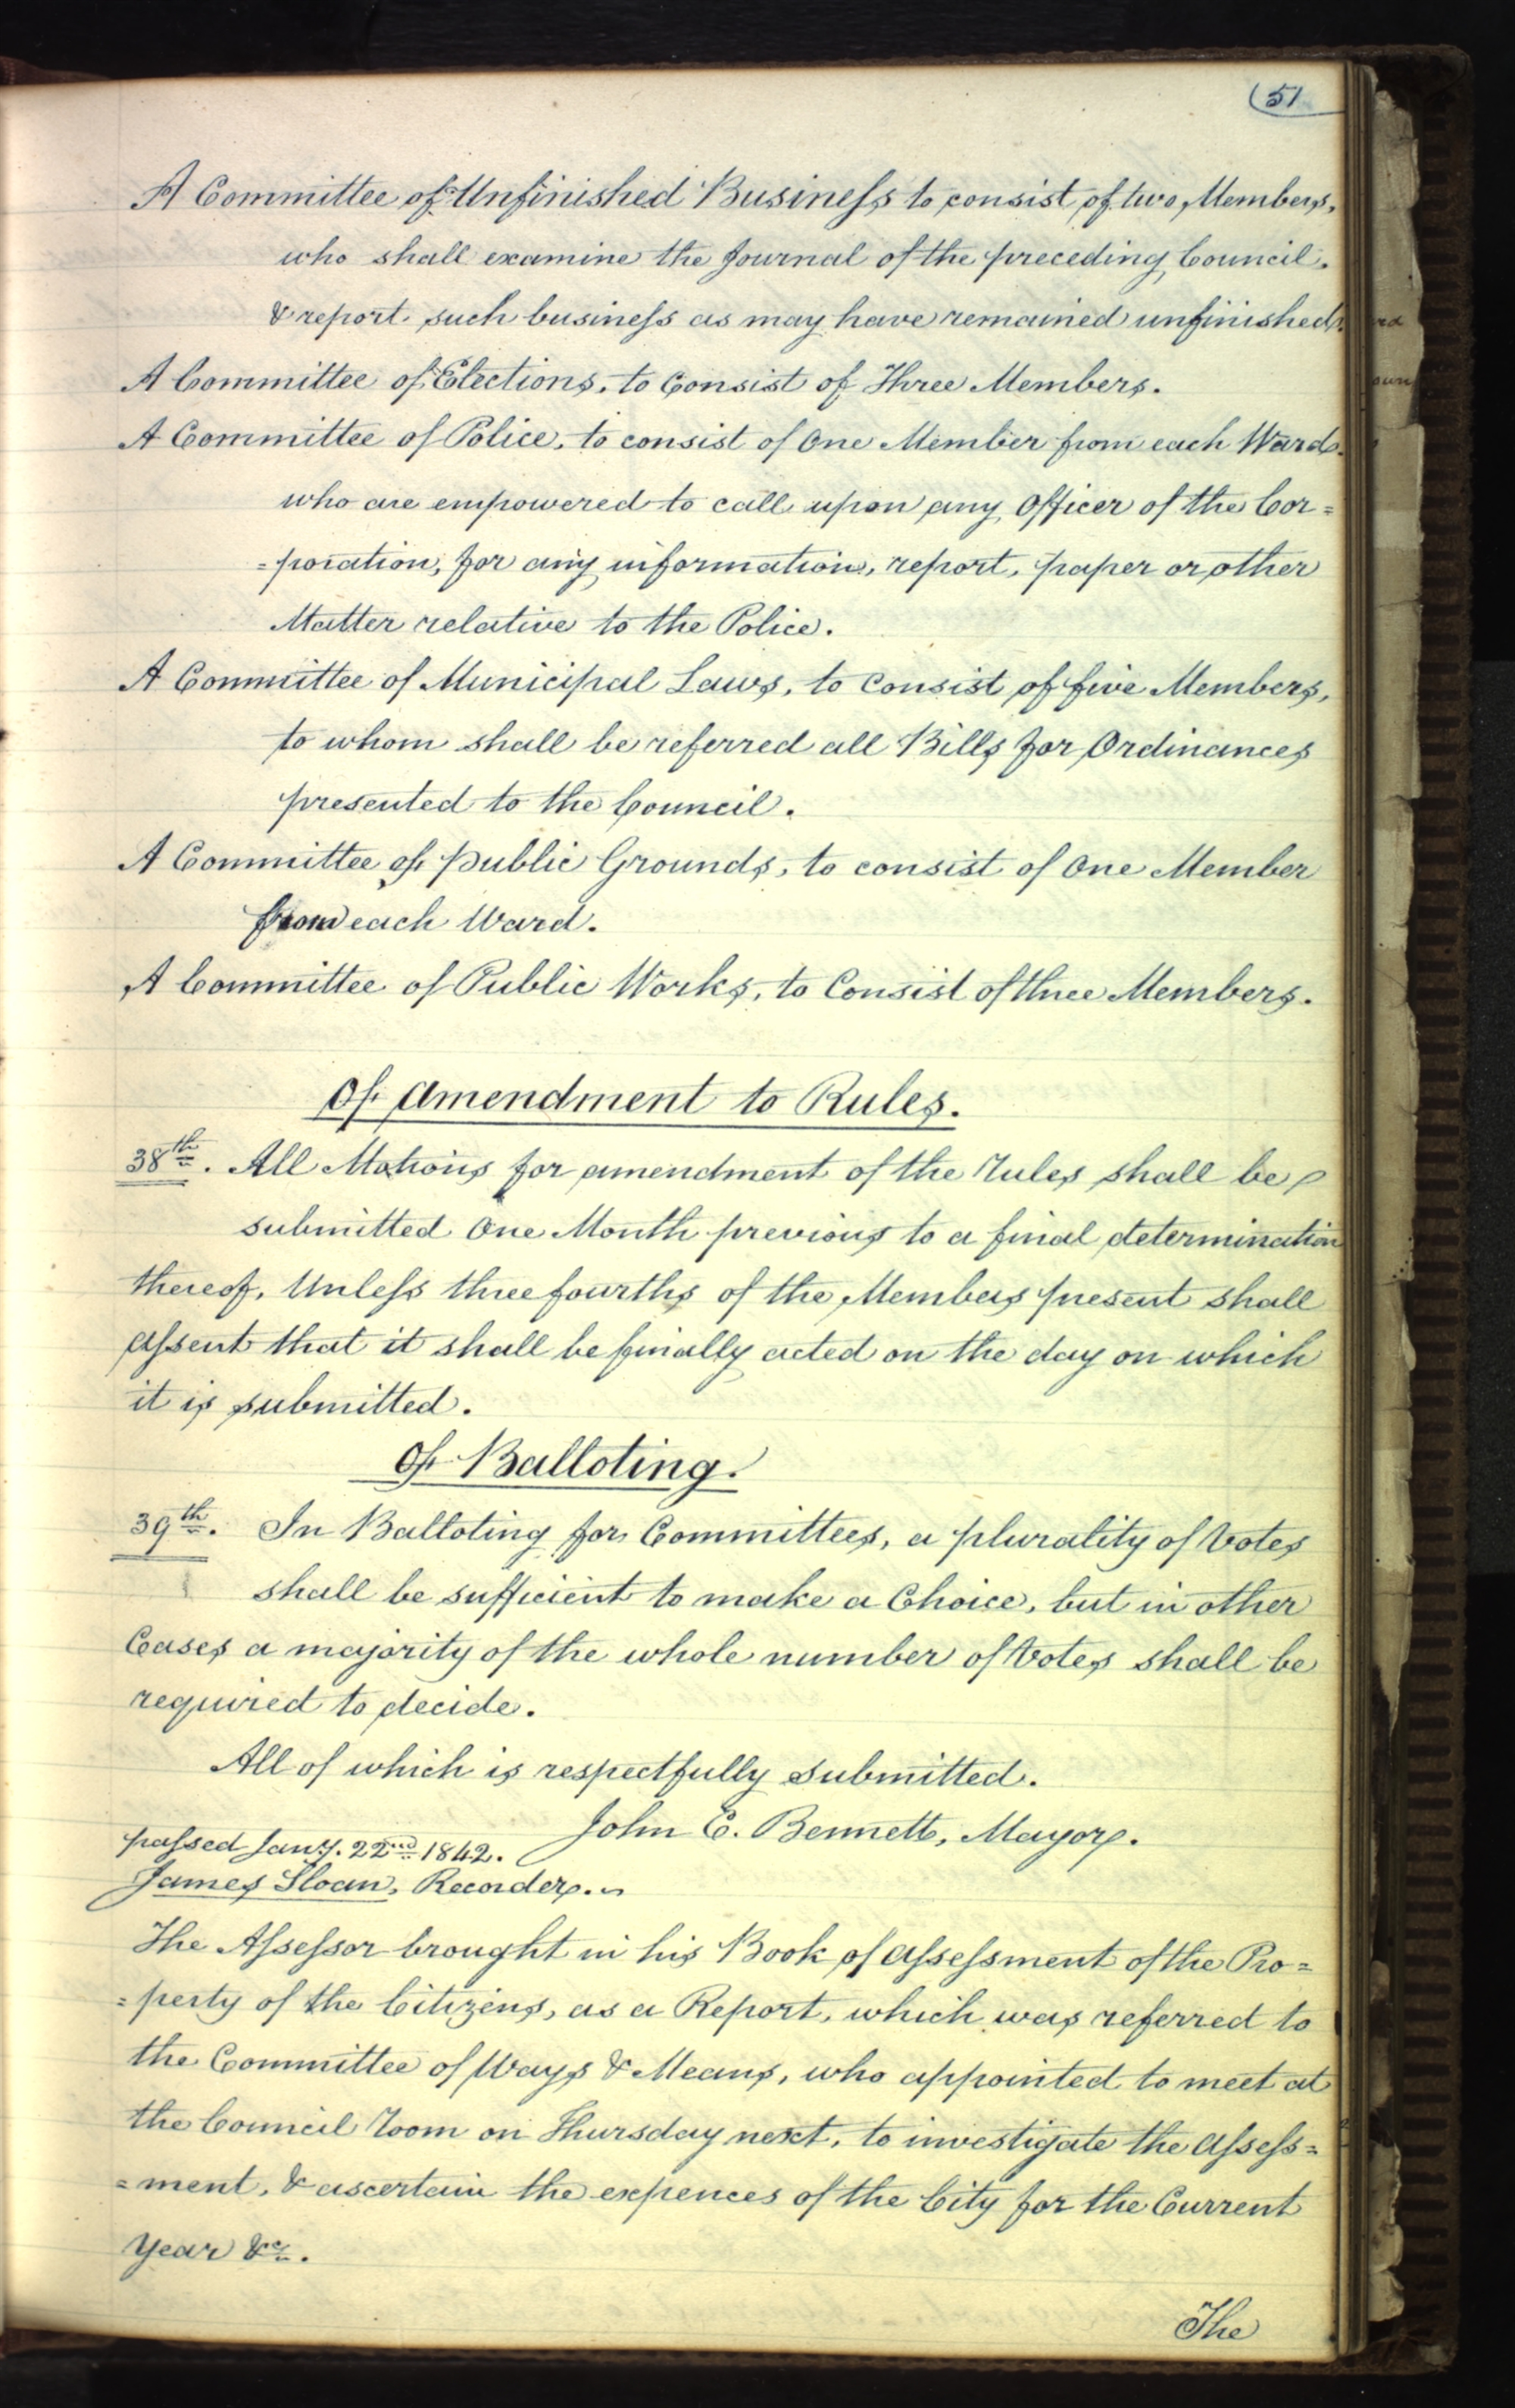 (51
A Committee of Unfinished Business to consist of two Members,
who shall examine the Journal of the preceding Council.
& report such business as may have remained unfinished.
A Committee of Elections, to Consist of Three Members.
A Committee of Police, to consist of One Member from each Ward.
who are empowered to call upon any Officer of the Cor=
=poration, for any information, report, paper or other
Matter relative to the Police.
A Committee of Municipal Laws, to consist of five Members,
to whom shall be referred all Bills for Ordinances
presented to the Council.
A Committee of public Grounds, to consist of One Member
from each Ward.
A Committee of Public Works, to Consist of three Members.
Of Amendment to Rules.
38th. All Motions for amendment of the Rules shall be
submitted One Month previous to a final determination
thereof, Unless three fourths of the Members present shall
assent that it shall be finally acted on the day on which
it is submitted.
Of Balloting.
39th. In Balloting for Committees, a plurality of Votes
shall be sufficient to make a Choice, but in other
Cases a majority of the whole number of Votes shall be
required to decide.
All of which is respectfully submitted.
John C. Bennett, Mayor.
passed Jany. 22nd 1842.
James Sloan, Recorder.
The Assessor brought in his Book of Assessment of the Pro=
=perty of the Citizens, as a Report, which was referred to
the Committee of Ways & Means, who appointed to meet at
the Council Room on Thursday next, to investigate the Assess=
=ment, & ascertain the expences of the City for the Current
Year &c.
The